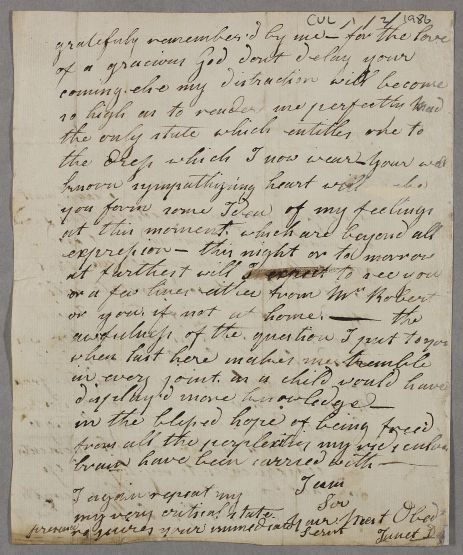 CUL/1/2/1986
gratefuly remember'd by me – for the love
of a gracious God dont delay your
coming else my distraction will become
so high as to render me perfectly mad
the only state which entitles one to
the dress which I now wear – Your well
known sympathizing heart will
you form some Idea of my feelings
at this moment which are beyond all
expression – this night or to morrow
at furthest will I expect to see you
or a few lines either from Mr Robert
or you if not at home – the
awfulness of the question I put to you
when last here makes me tremble
in every joint. as a child would have
display'd more knowledge –
in the blessed hope of being freed
from all the perplexities my ridiculous
brain have been carried with –
I again repeat my
I am
Sir
my very critical state
your most Obed
requires your immediate
presence
Servt